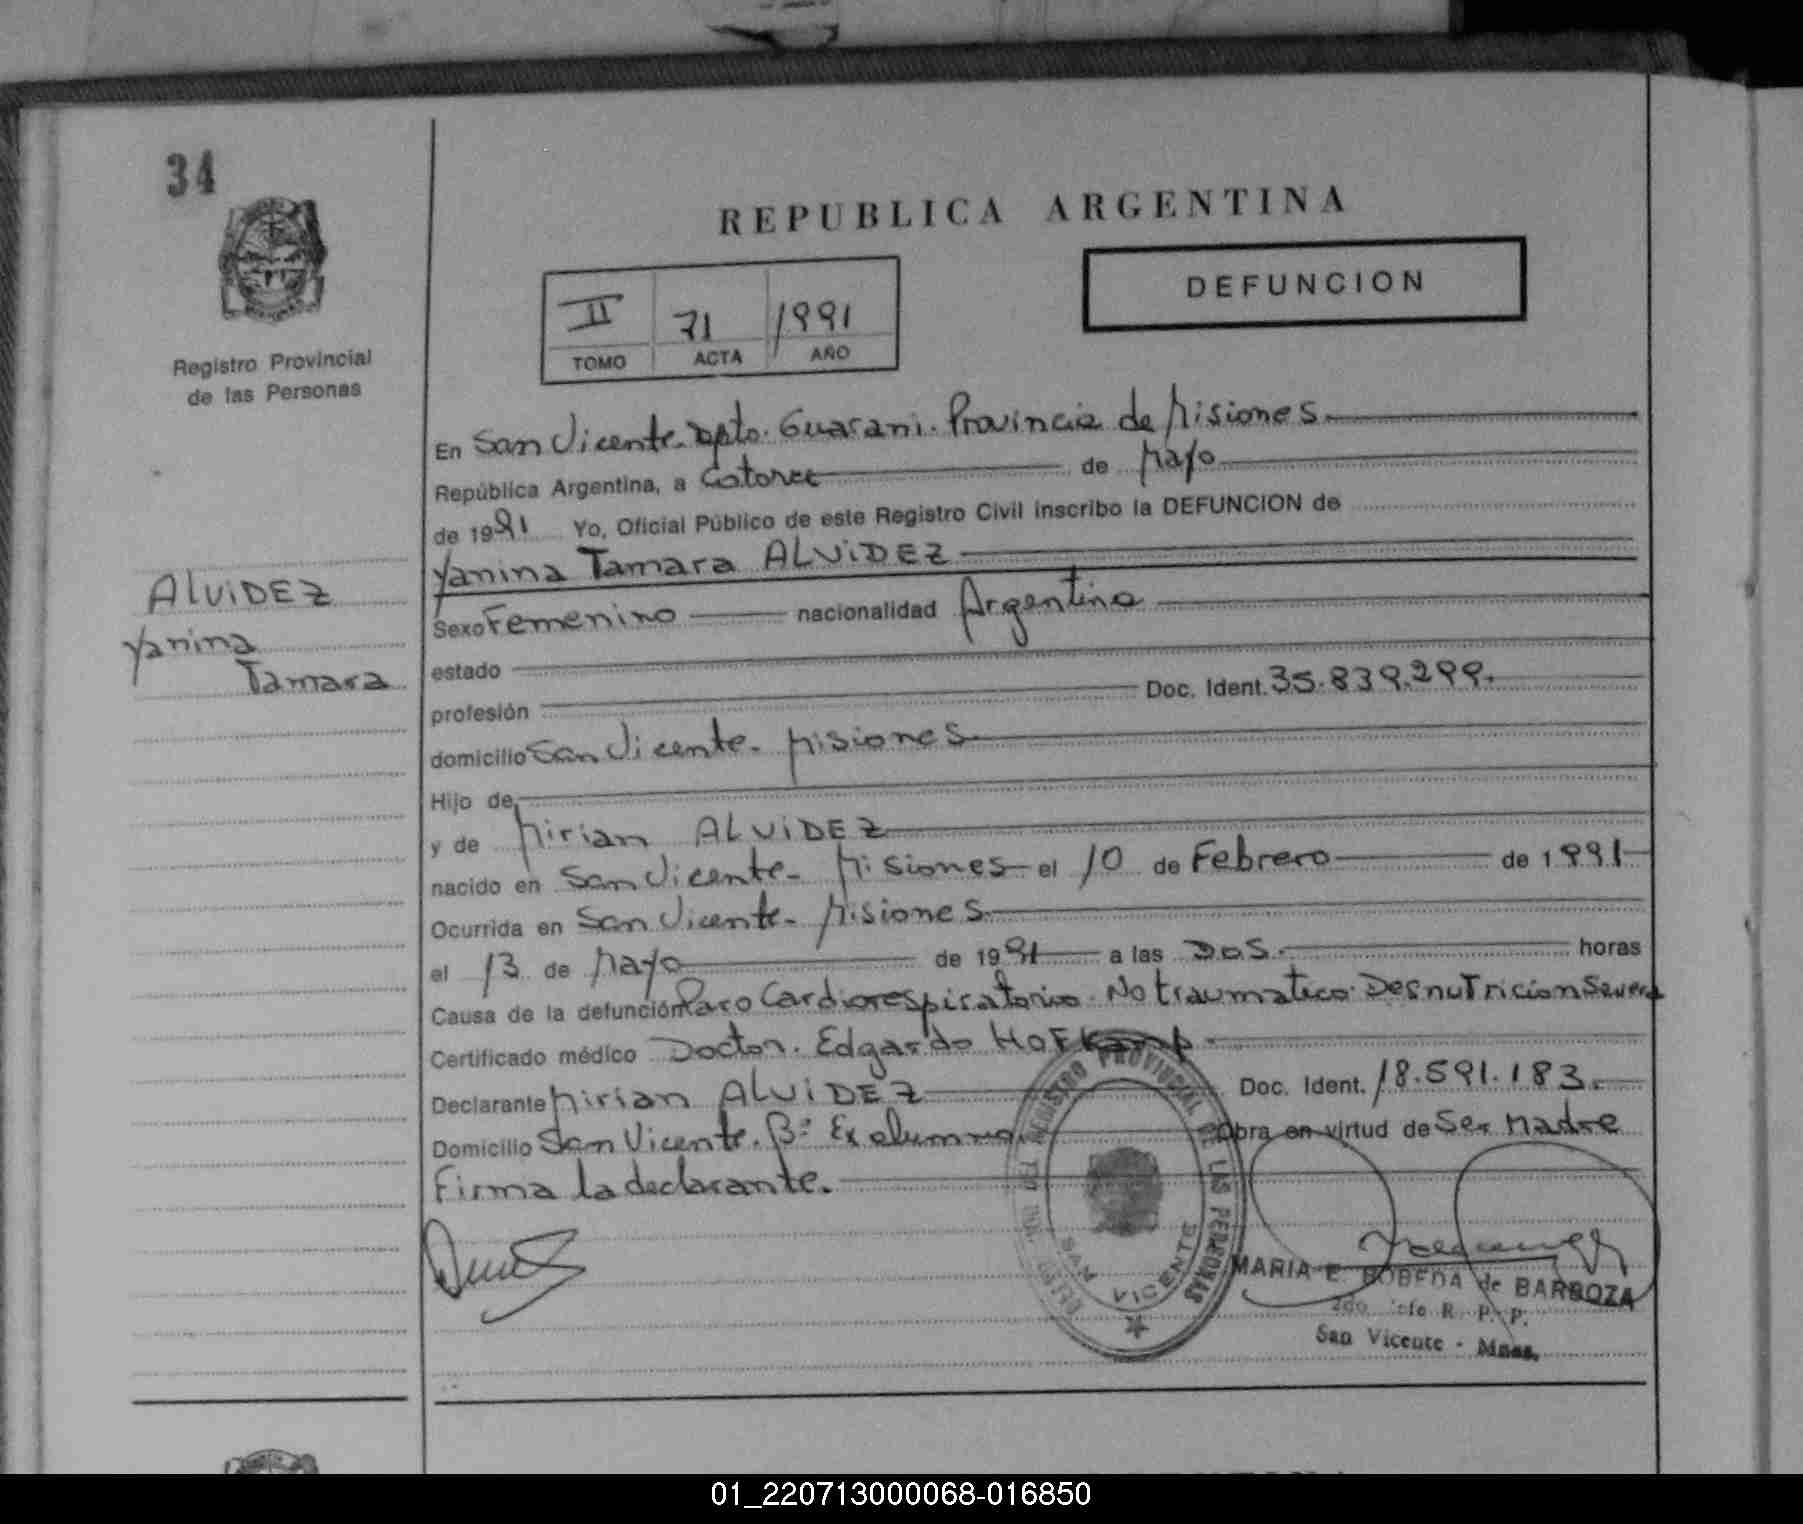 34
REPUBLICA ARGENTINA
DEFUNCION
II 71 1991
TOMO ACTA AÑO
Registro Provincial
de las Personas
ALVIDEZ
Yanina
Tamara
En San Vicente. Dpto. Guarani. Provincia de Misiones
República Argentina, a Catorce de Mayo
de 1991 Yo, Oficial Público de este Registro Civil inscribo la DEFUNCION de
Yanina Tamara ALVIDEZ
Sexo Femenino nacionalidad Argentina
estado
profesión Doc. Ident. 35.839.299.
domicilio San Vicente. Misiones
Hijo de
y de Mirian ALVIDEZ
nacido en San Vicente - Misiones el 10 de Febrero de 1991
Ocurrida en San Vicente - Misiones
el 13 de Mayo de 1991 a las Dos. horas
Causa de la defunción Paro Cardiorespiratorio. No traumatico. Desnutricion Severa
Certificado médico Doctor. Edgardo HOFKamp.
Declarante Mirian ALVIDEZ Doc. Ident. 18.591.183.
Domicilio San Vicente. Bº Ex alumno. Obra en virtud de Ser Madre
Firma la declarante.
REGISTRO PROVINCIAL DE LAS PERSONAS
SAN VICENTE
MARIA E. BOBEDA de BARBOZA
2do. Jefe R. P. P.
San Vicente - Mnes.
01_220713000068-016850